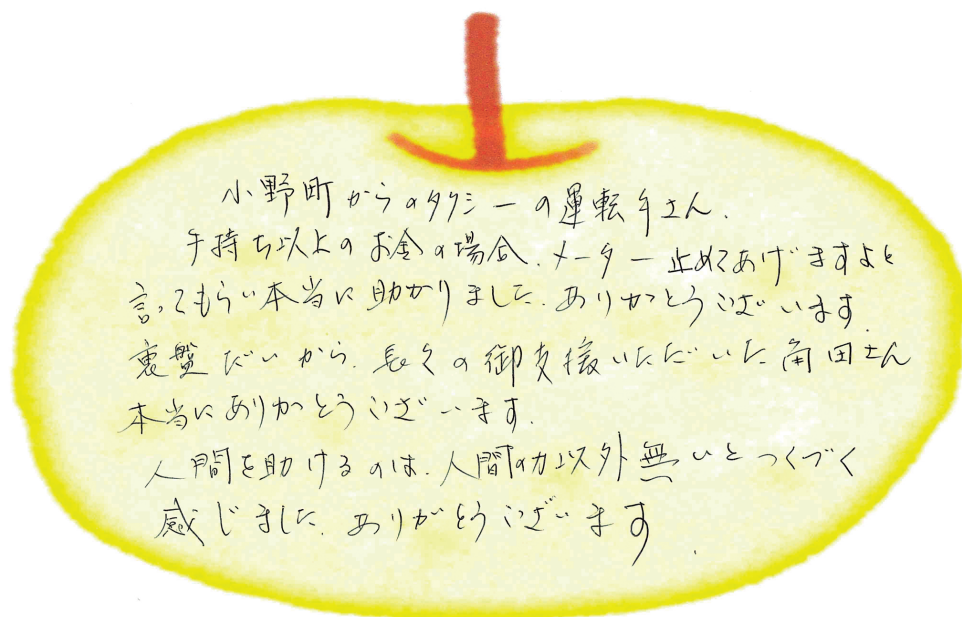 小野町からのタクシーの運転手さん、
手持ち以上のお金の場合、メーター止めてあげますよと
言ってもらい本当に助かりました、ありがとうございます、
裏盤だいから、長々の御支援いただいた角田さん
本当にありがとうございます、
人間を助けるのは、人間の力以外無いとつくづく
感じました、ありがとうございます、